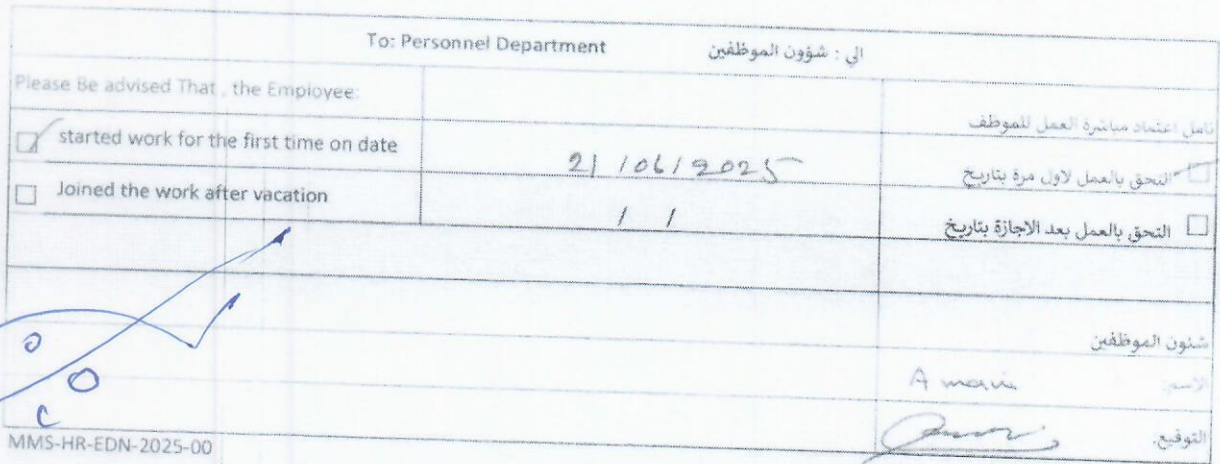 To: Personnel Department الي : شؤون الموظفين
Please Be advised That , the Employee:
نامل اعتماد مباشرة العمل للموظف
started work for the first time on date 21/06/2025 التحق بالعمل لاول مرة بتاريخ
Joined the work after vacation / / التحق بالعمل بعد الاجازة بتاريخ
شئون الموظفين
الاسم:
التوقيع:
MMS-HR-EDN-2025-00